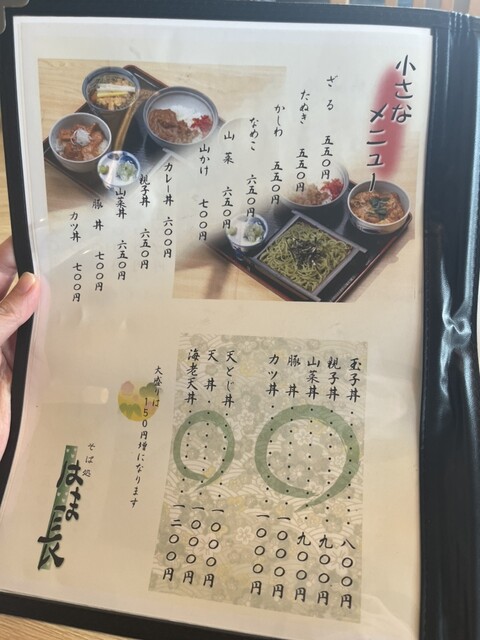 小さな
メニュー
ざる 五五〇円
たぬき 五五〇円
かしわ 五五〇円
なめこ 六五〇円
山菜 六五〇円
山かけ 七〇〇円
カレー丼 六〇〇円
親子丼 六五〇円
山菜丼 六五〇円
豚丼 七〇〇円
カツ丼 七〇〇円
玉子丼 八〇〇円
親子丼 九〇〇円
山菜丼 九〇〇円
豚丼 一〇〇〇円
カツ丼 一〇〇〇円
天とじ丼 一〇〇〇円
天丼 一〇〇〇円
海老天丼 一二〇〇円
大盛りは
150円増になります
そば処
はま長